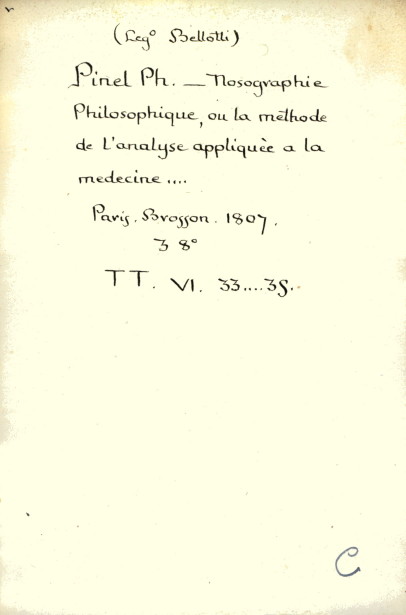 (Leg° Bellotti)
Pinel Ph. — Nosographie
Philosophique, ou la méthode
de L'analyse appliquèe a la
medecine....
Paris. Brosson. 1807.
3 8°
TT. VI. 33....35.
C